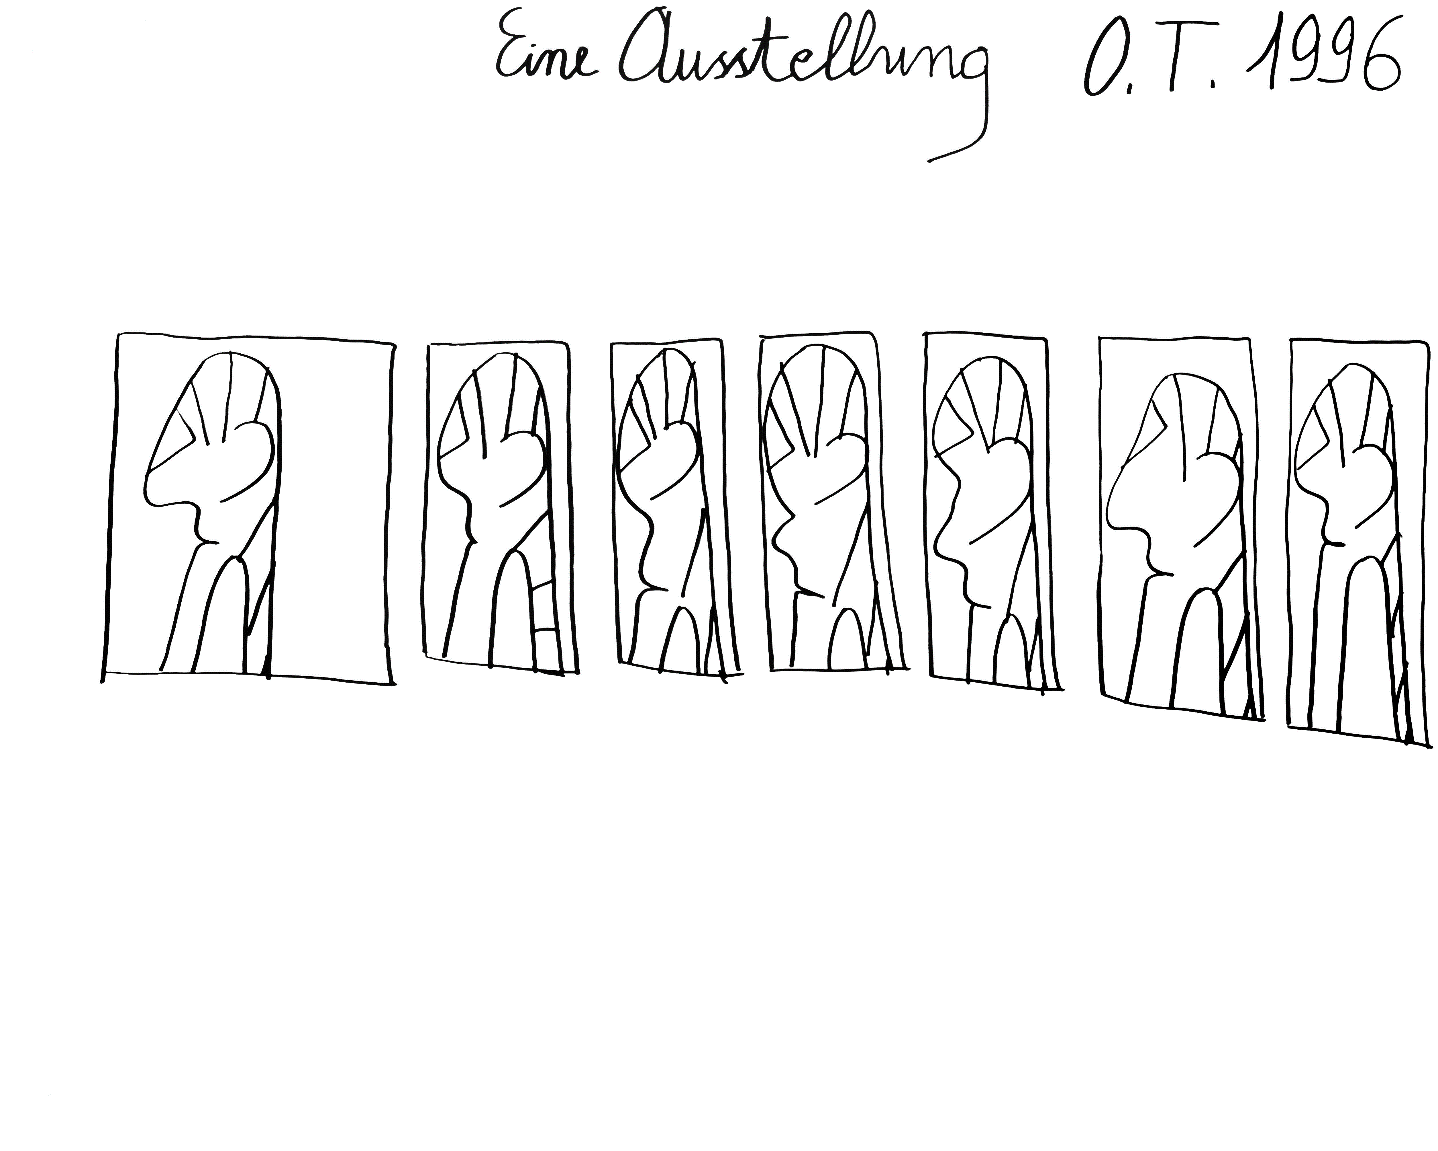 Eine Ausstellung O.T. 1996